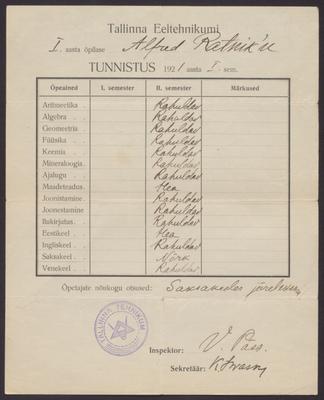 Tallinna Eeltehnikumi
I. aasta õpilase Alfred Ratnik'u
TUNNISTUS 1921 aasta I. sem.
Õpeained I. semester II. semester Märkused
Aritmeetika . . Rahuldav
Algebra . . . Rahuldav
Geomeetria . . Rahuldav
Füüsika . . . Rahuldav
Keemia . . . Rahuldav
Mineraloogia . Rahuldav
Ajalugu . . . Rahuldav
Maadeteadus . Hea
Joonistamine . Rahuldav
Joonestamine Rahuldav
Ilukirjatus . . Rahuldav
Eestikeel . . . Hea
Ingliskeel . . Rahuldav
Saksakeel . . Nõrk
Venekeel . . Rahuldav
Õpetajate nõukogu otsused: Saksakeeles
TALLINNA TEHNIKUM
Inspektor: V. Paas.
Sekretäär: